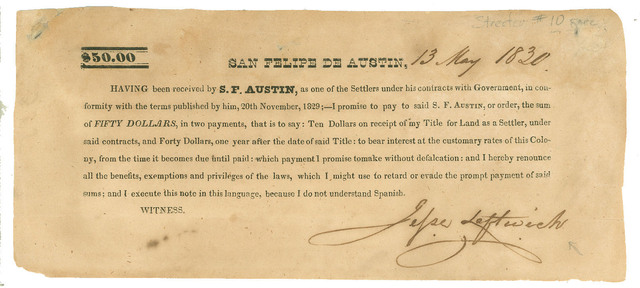 Streeter #10 rare
$50.00
SAN FELIPE DE AUSTIN, 13 May 1830.
HAVING been received by S. F. AUSTIN, as one of the Settlers under his contracts with Government, in con-
formity with the terms published by him, 20th November, 1829;—I promise to pay to said S. F. AUSTIN, or order, the sum
of FIFTY DOLLARS, in two payments, that is to say: Ten Dollars on receipt of my Title for Land as a Settler, under
said contracts, and Forty Dollars, one year after the date of said Title: to bear interest at the customary rates of this Colo-
ny, from the time it becomes due until paid: which payment I promise to make without defalcation: and I hereby renounce
all the benefits, exemptions and privileges of the laws, which I might use to retard or evade the prompt payment of said
sums; and I execute this note in this language, because I do not understand Spanish.
WITNESS.
Jesse Leftwich